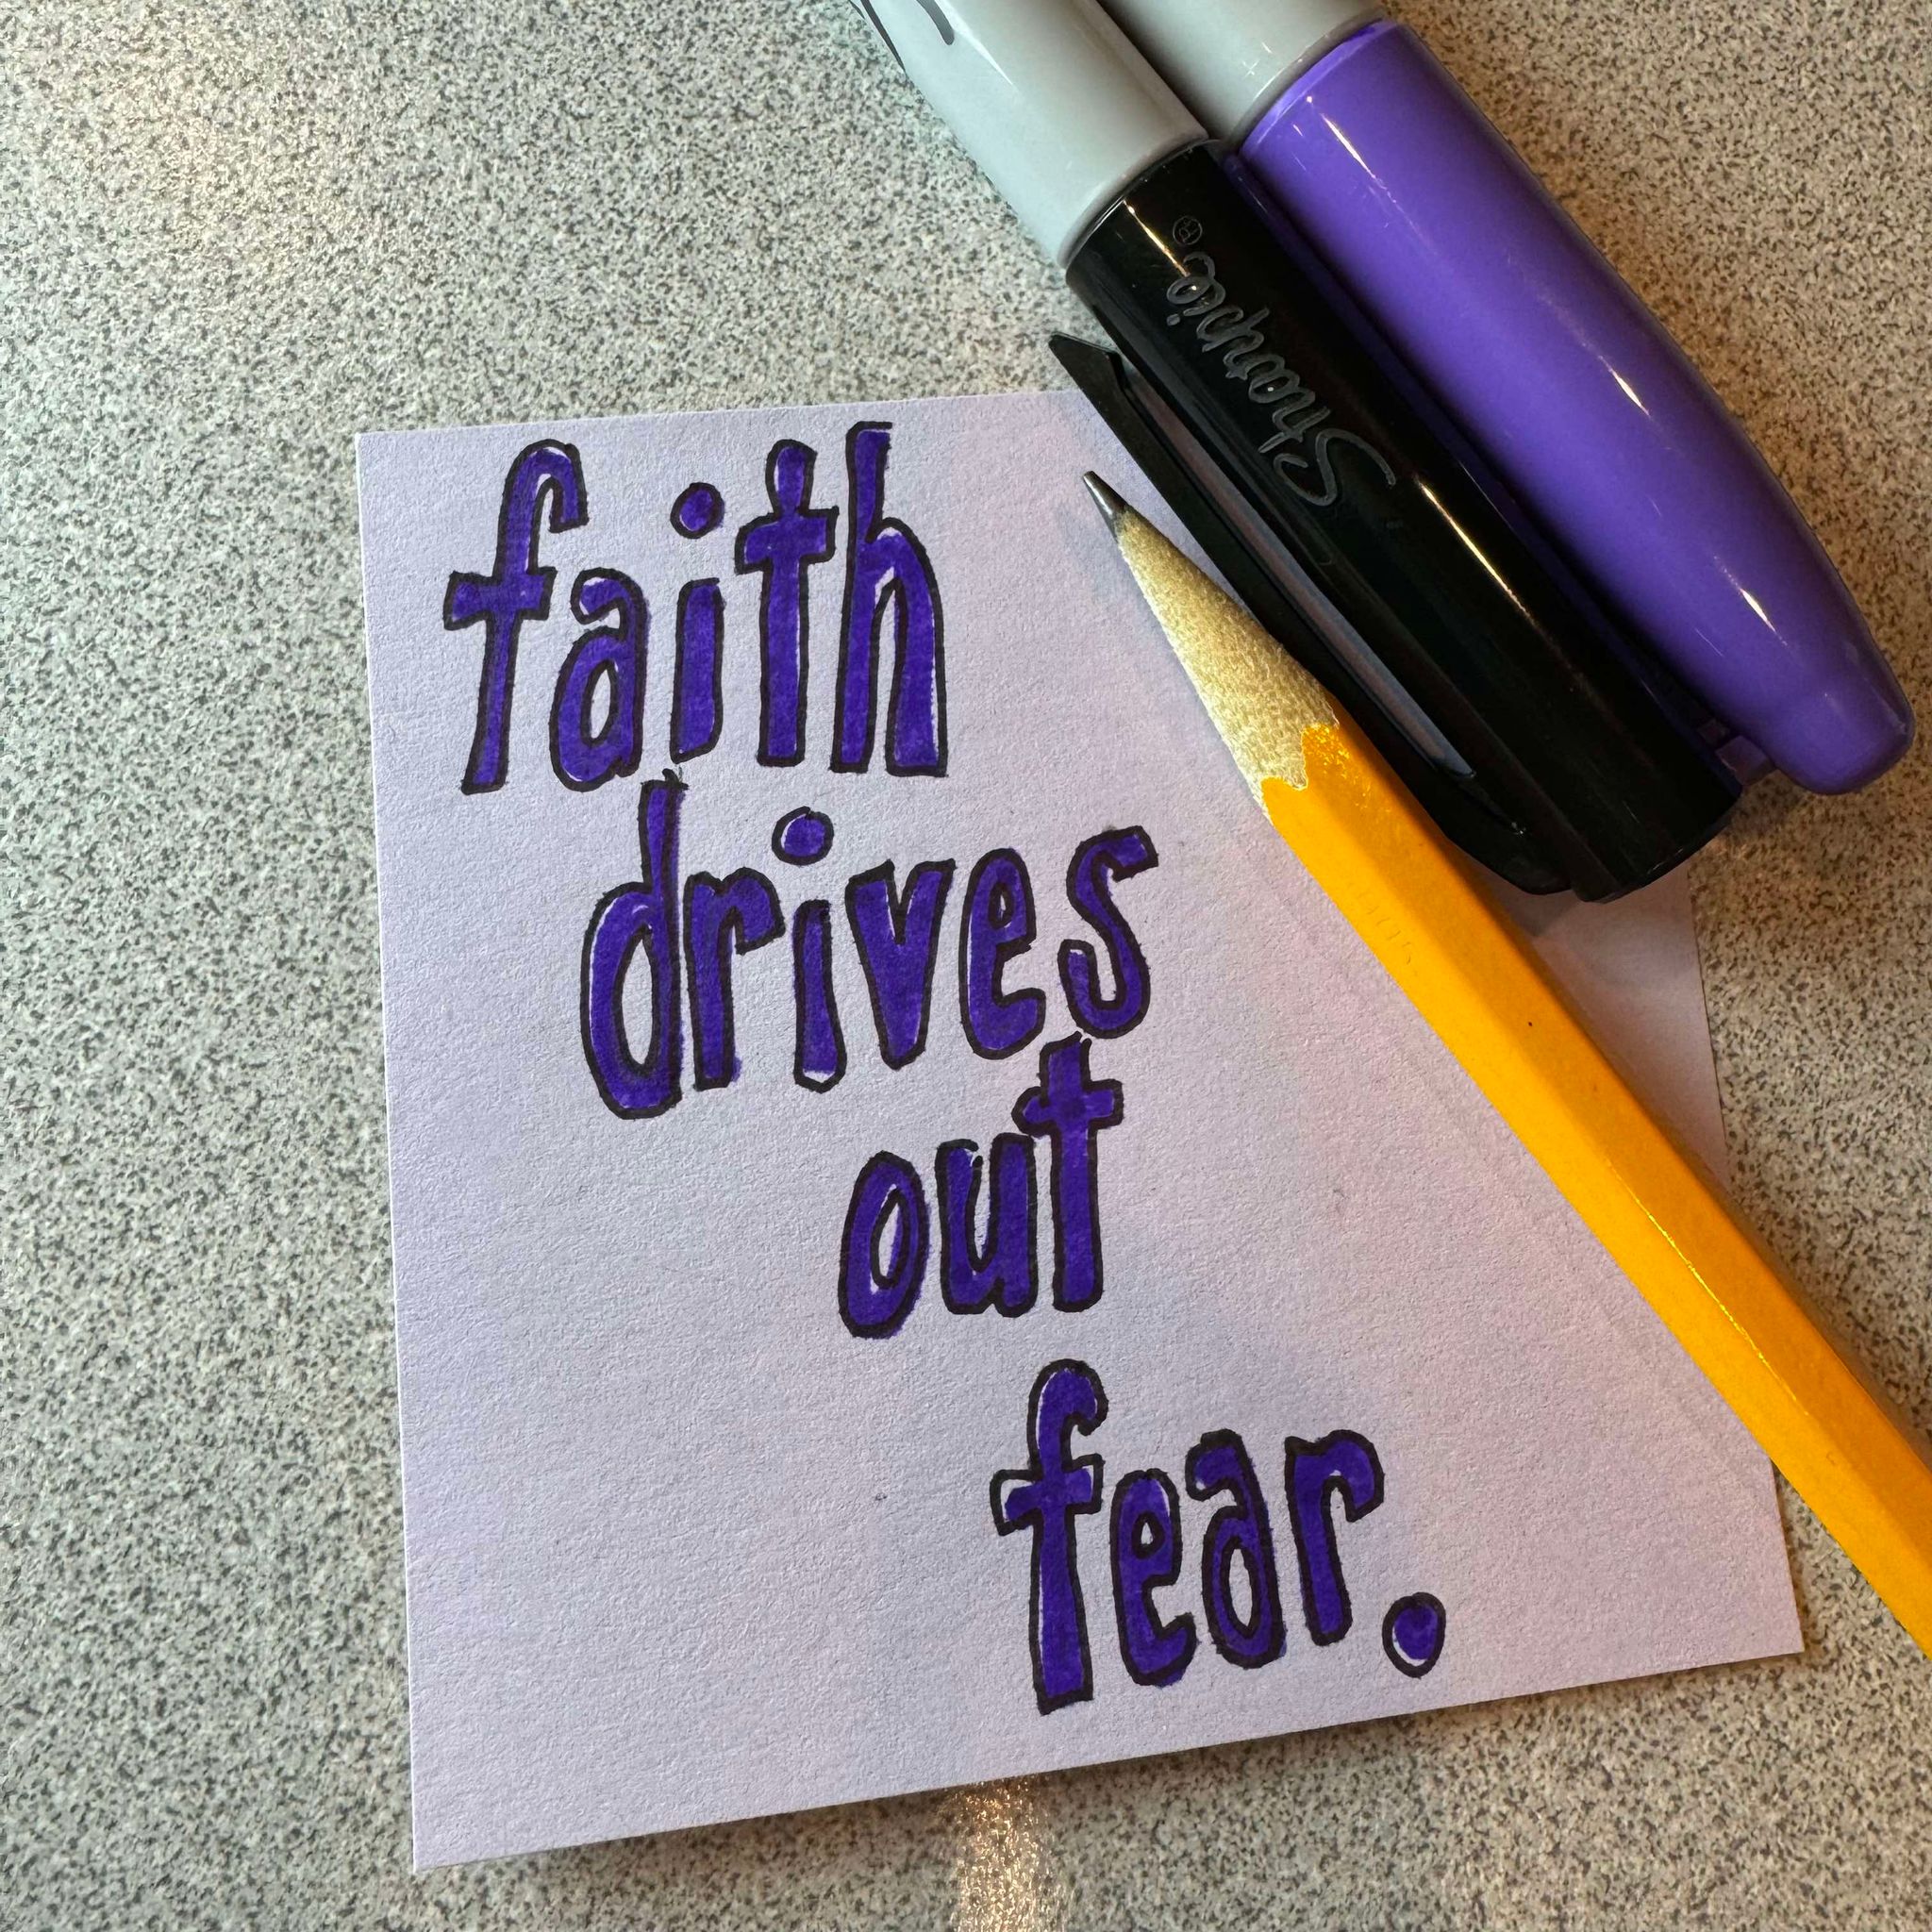 faith
drives
out
fear.
Sharpie®